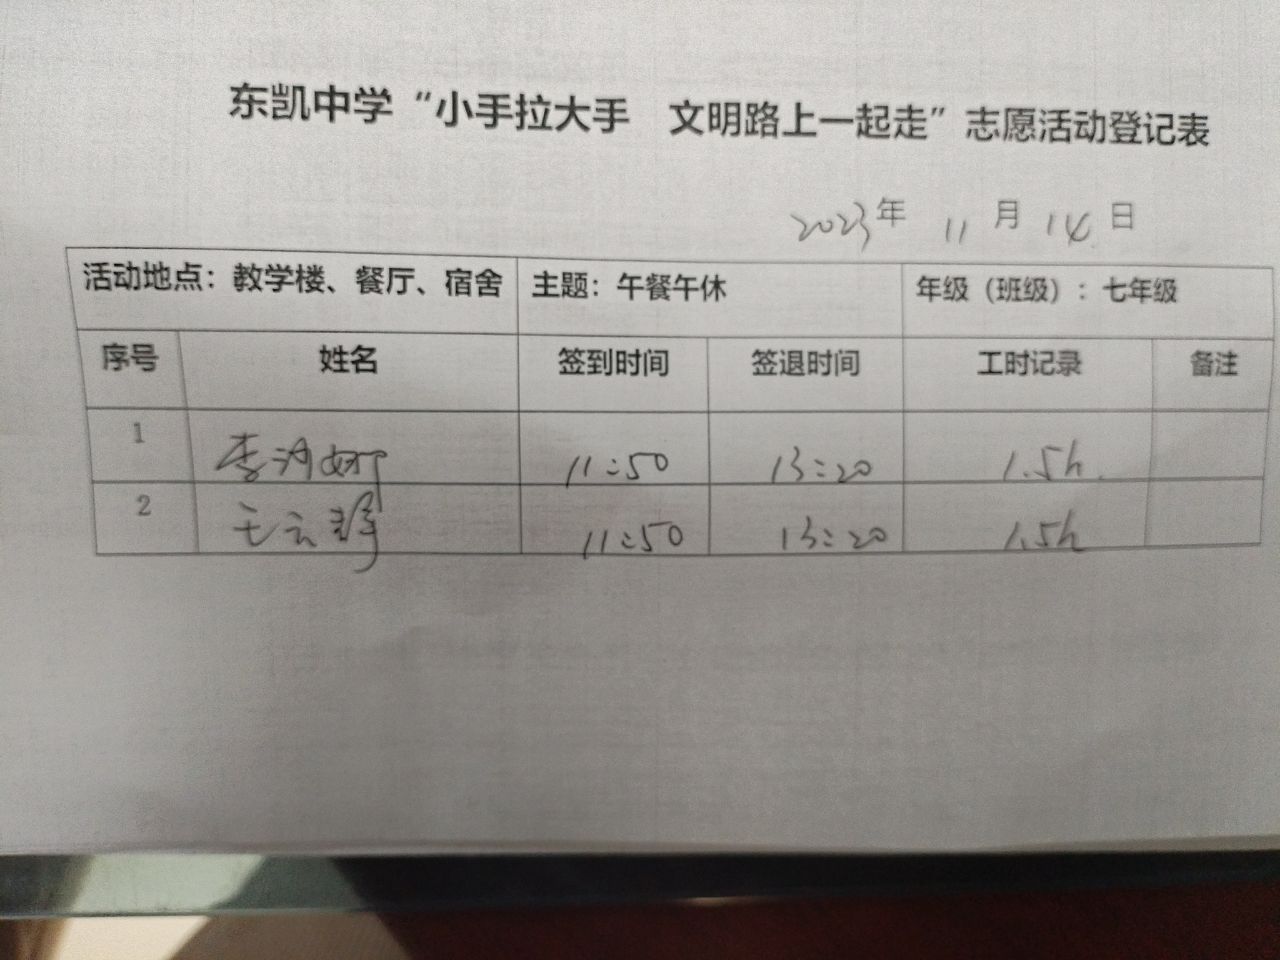 东凯中学“小手拉大手 文明路上一起走”志愿活动登记表
2023年 11 月 14 日
活动地点：教学楼、餐厅、宿舍 主题：午餐午休 年级（班级）：七年级
序号 姓名 签到时间 签退时间 工时记录 备注
1 李 娜 11:50 13:20 1.5h
2 王云 11:50 13:20 1.5h